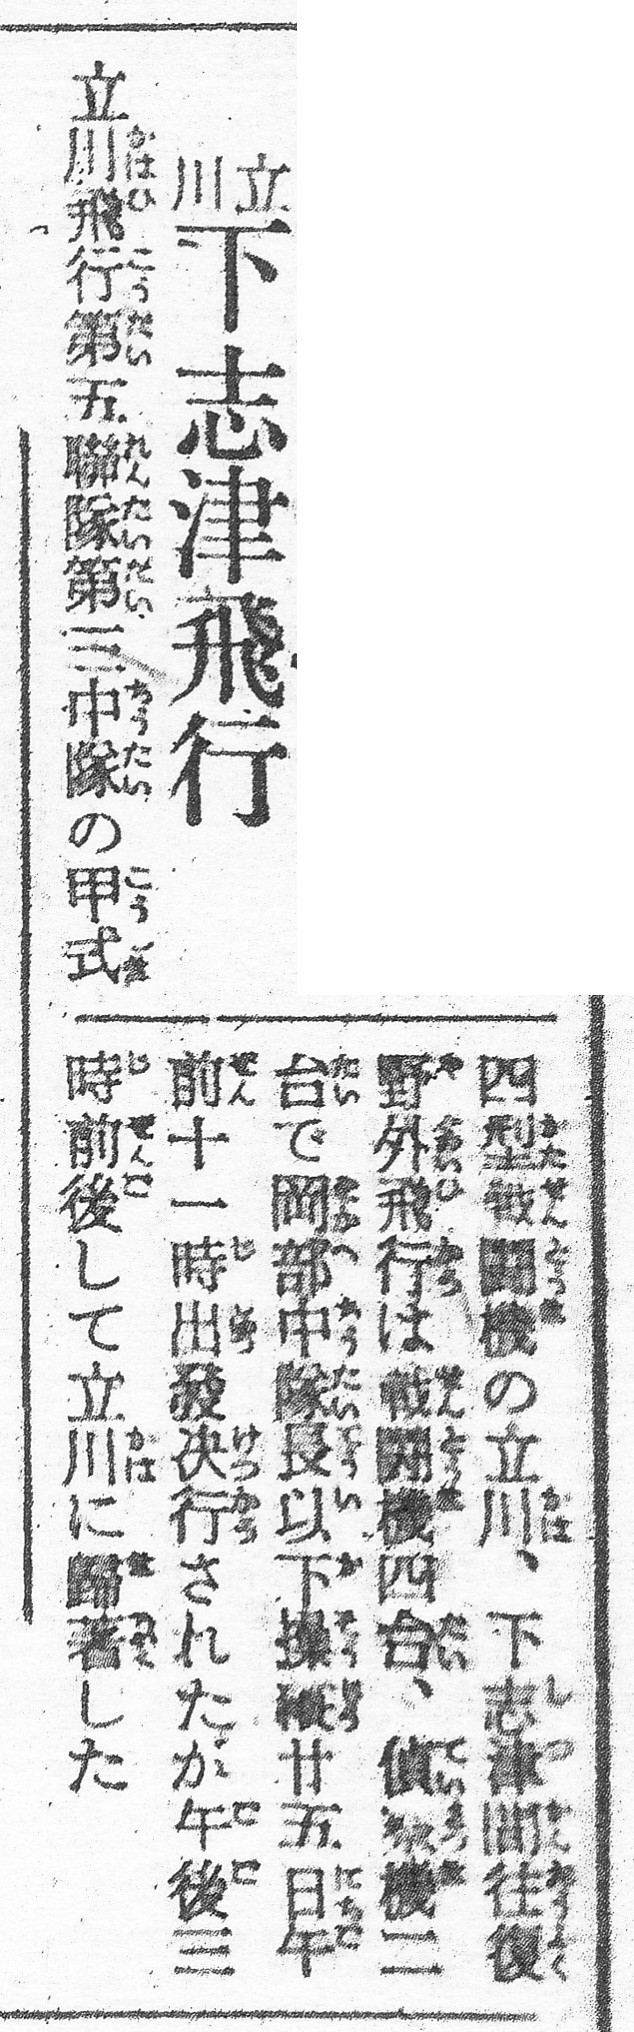 立川
下志津飛行
立川飛行第五聯隊第三中隊の甲式
四型戦闘機の立川、下志津間往復
野外飛行は戦闘機四台、偵察機二
台で岡部中隊長以下操縦廿五日午
前十一時出發决行されたが午後三
時前後して立川に歸著した